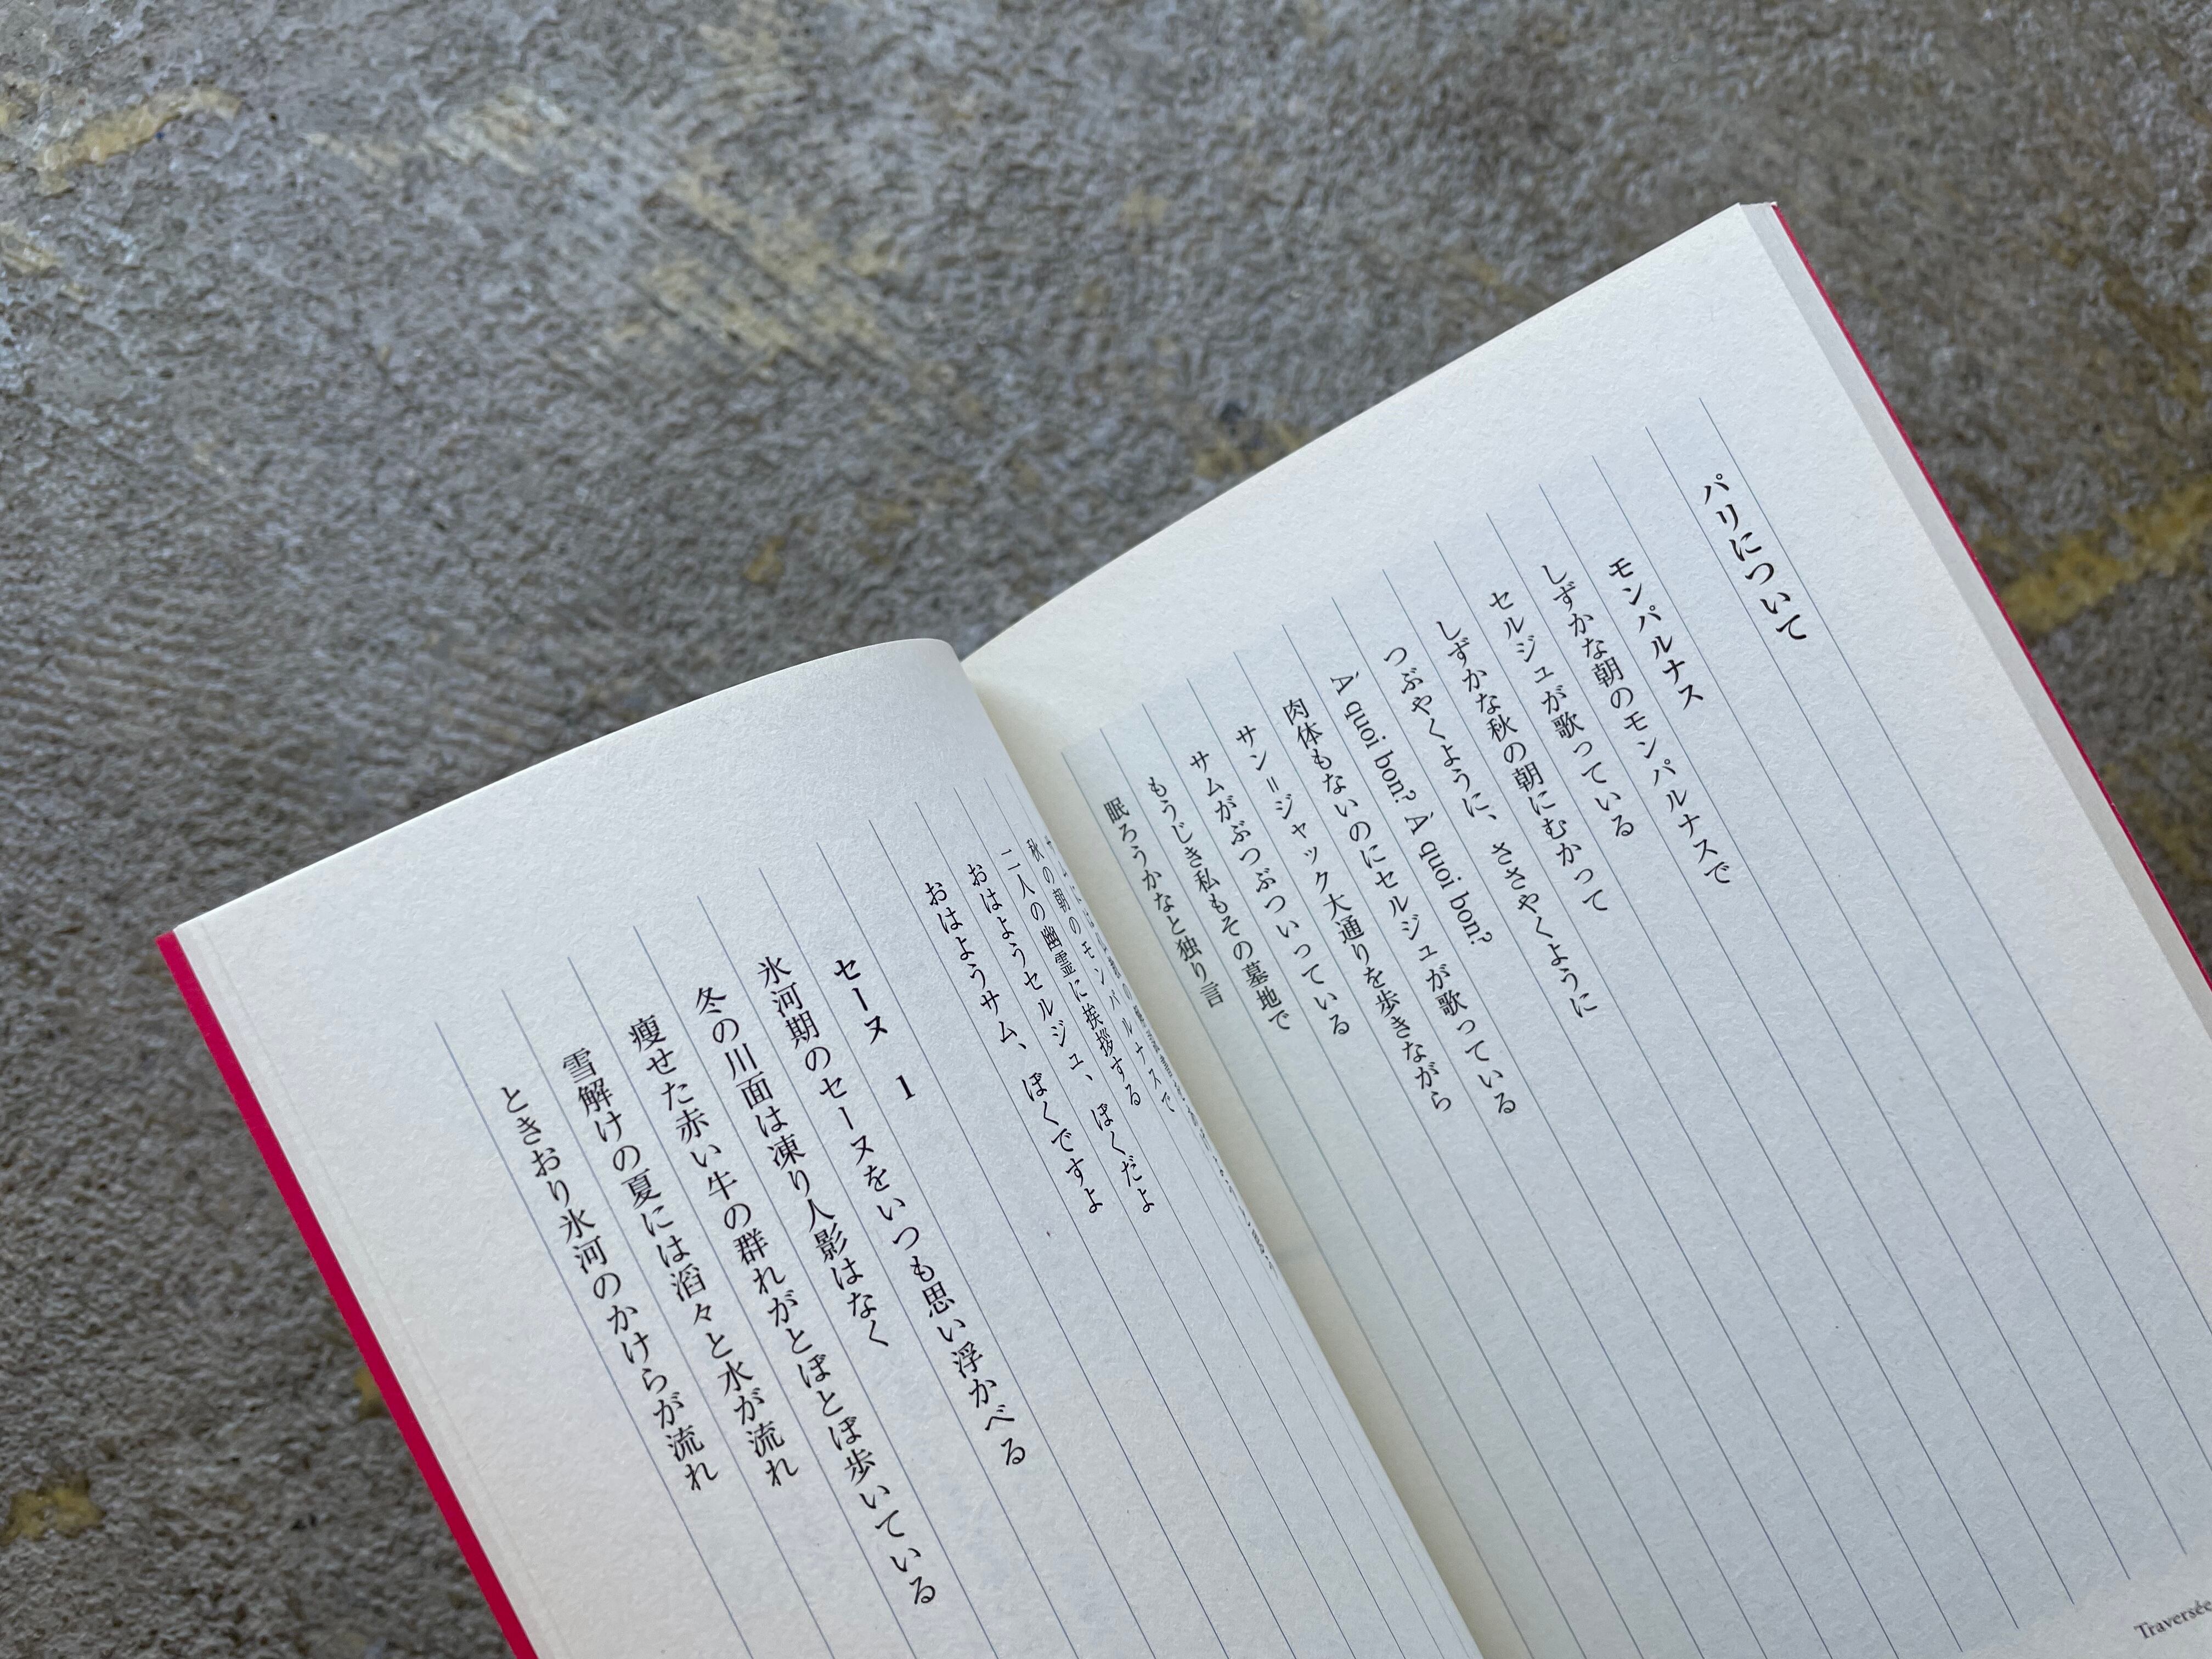 パリについて
モンパルナス
しずかな朝のモンパルナスで
セルジュが歌っている
しずかな秋の朝にむかって
つぶやくように、ささやくように
À quoi bon? À quoi bon?
肉体もないのにセルジュが歌っている
サン=ジャック大通りを歩きながら
サムがぶつぶついっている
もうじき私もその墓地で
眠ろうかなと独り言
秋の朝のモンパルナスで
二人の幽霊に挨拶する
おはようセルジュ、ぼくだよ
おはようサム、ぼくですよ
セーヌ 1
氷河期のセーヌをいつも思い浮かべる
冬の川面は凍り人影はなく
痩せた赤い牛の群れがとぼとぼ歩いている
雪解けの夏には滔々と水が流れ
ときおり氷河のかけらが流れ
Traversée